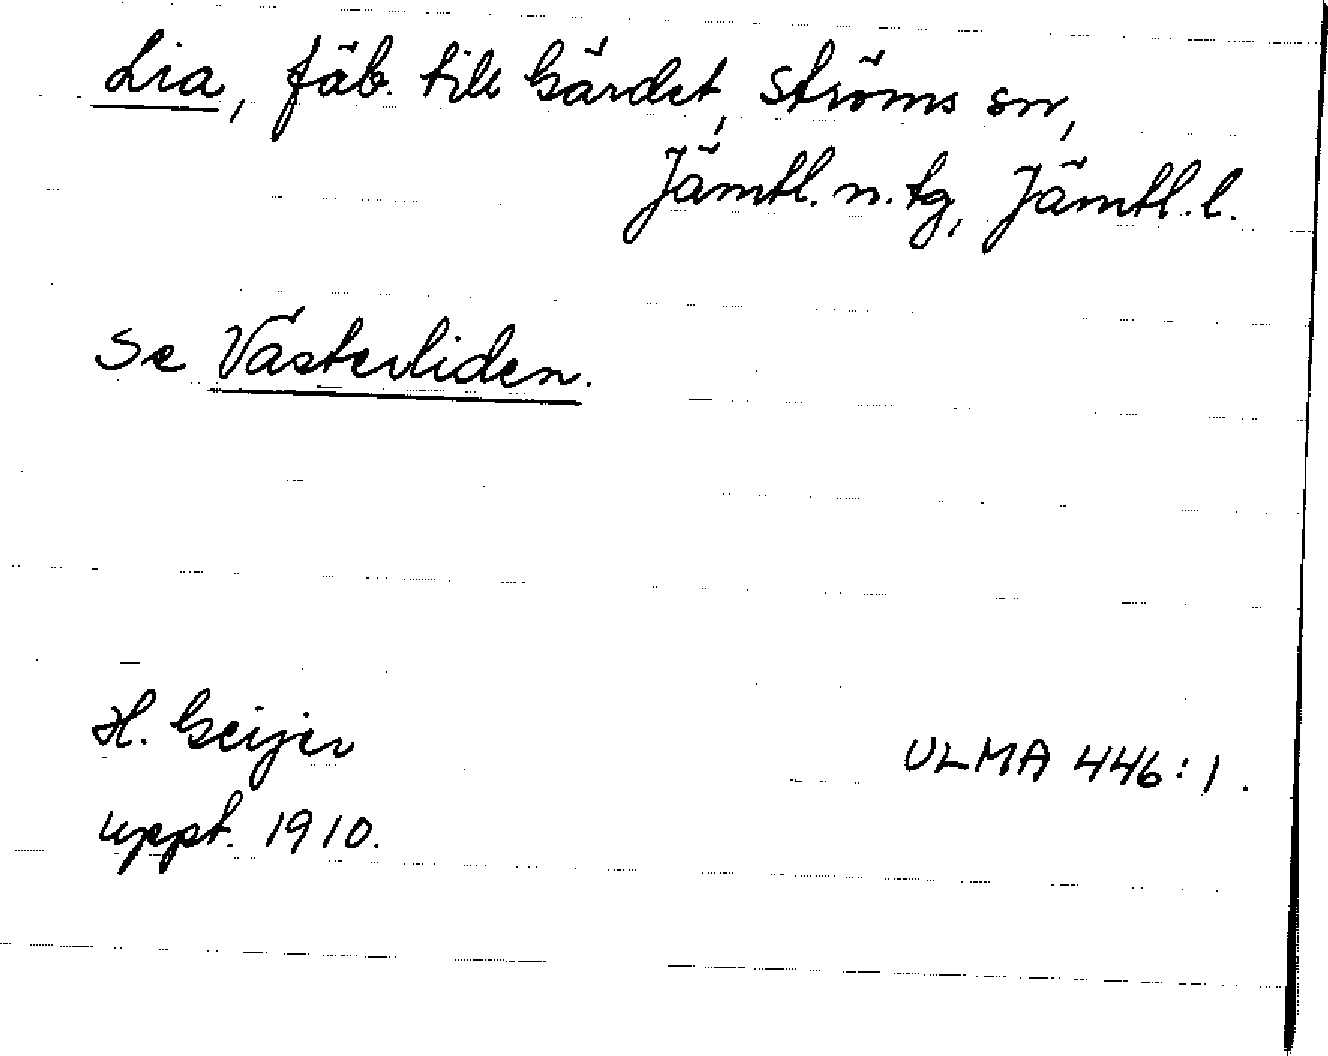 Lia, fäb. till Gärdet, Ströms sn,
Jämtl. n. tg, Jämtl. l.
Se Västerliden.
H. Geijer
ULMA 446:1.
uppt. 1910.